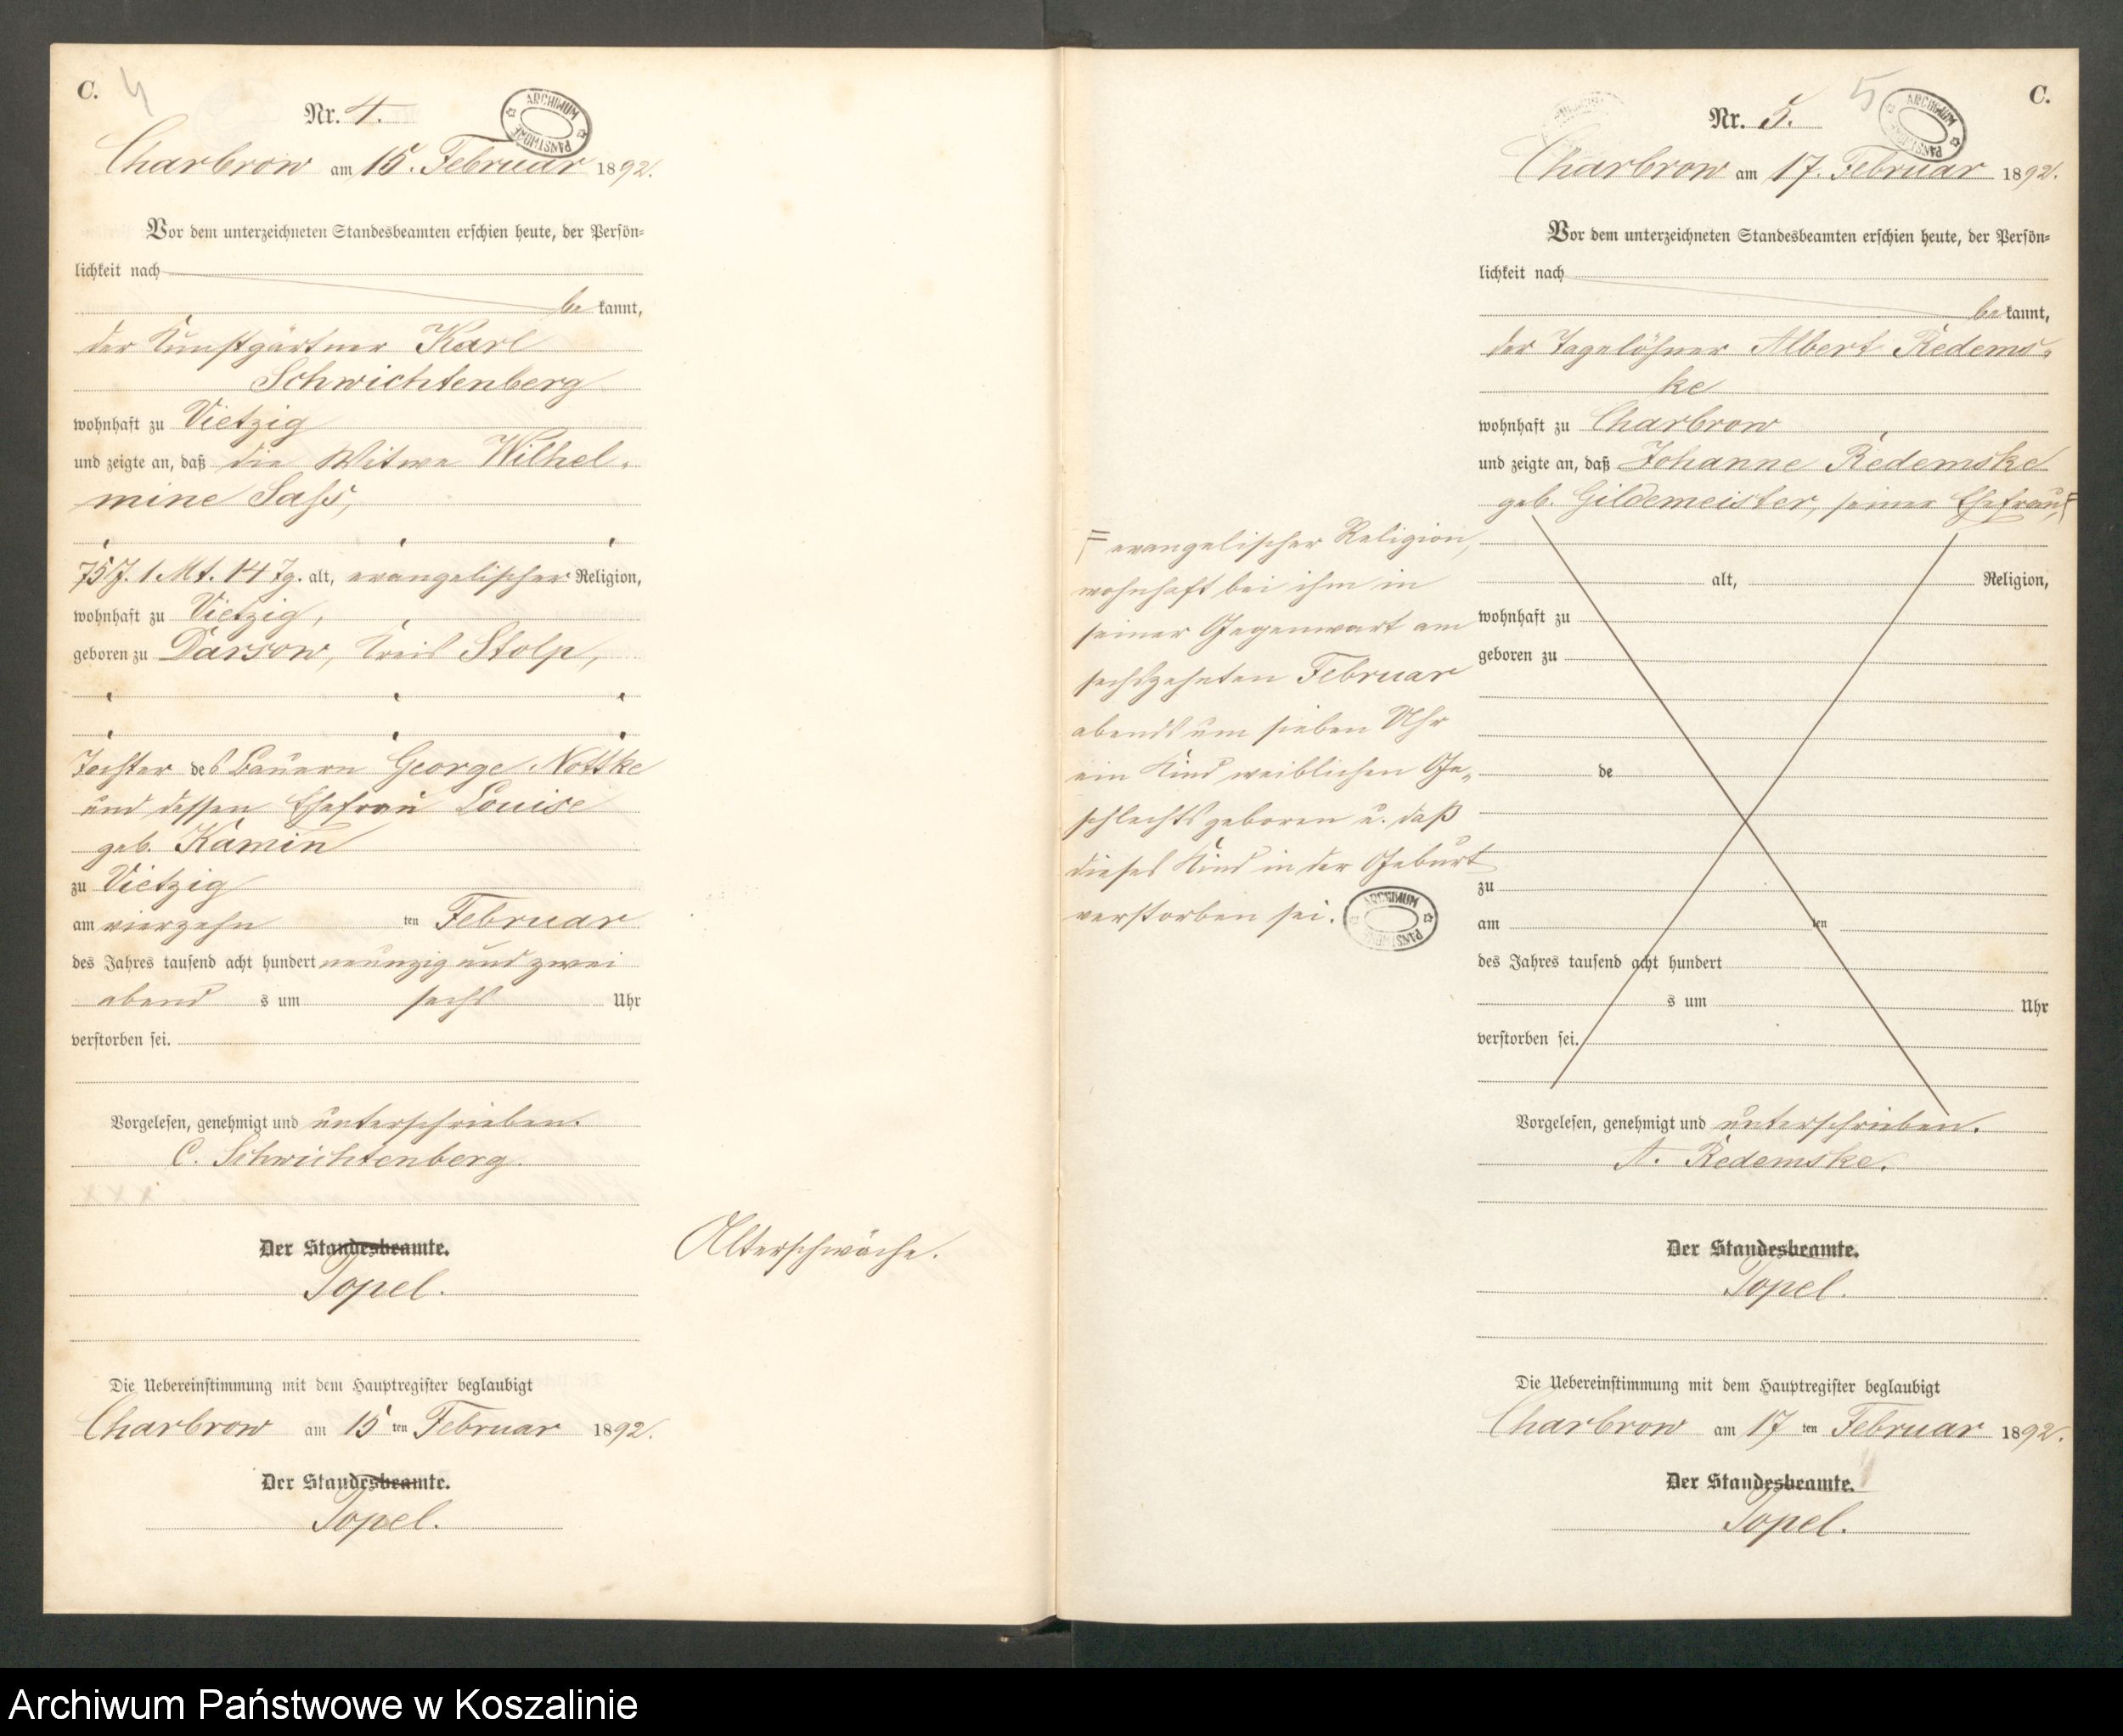 C. 4
Nr. 4.
ARCHIWUM PAŃSTWOWE
Charbrow am 15. Februar 1892.
Vor dem unterzeichneten Standesbeamten erschien heute, der Persön-
lichkeit nach
be kannt,
der Kunstgärtner Karl
Schwichtenberg
wohnhaft zu Vietzig
und zeigte an, daß die Witwe Wilhel-
mine Sass,
75 J. 1 Mt. 14 Tg. alt, evangelischer Religion,
wohnhaft zu Vietzig,
geboren zu Darsow, Kreis Stolp,
Tochter des Bauern George Nottke
und dessen Ehefrau Louise
geb. Kamin
zu Vietzig
am vierzehn ten Februar
des Jahres tausend acht hundert neunzig und zwei
abend s um sechs Uhr
verstorben sei.
Vorgelesen, genehmigt und unterschrieben.
C. Schwichtenberg.
Der Standesbeamte.
Topel.
Alterschwäche.
Die Uebereinstimmung mit dem Hauptregister beglaubigt
Charbrow am 15 ten Februar 1892.
Der Standesbeamte.
Topel.
5 C.
Nr. 5.
ARCHIWUM PAŃSTWOWE
Charbrow am 17. Februar 1892.
Vor dem unterzeichneten Standesbeamten erschien heute, der Persön-
lichkeit nach
be kannt,
der Tagelöhner Albert Redems-
ke
wohnhaft zu Charbrow
und zeigte an, daß Johanne Redemske
geb. Gildemeister, seiner Ehefrau,
evangelischer Religion,
wohnhaft bei ihm in
seiner Gegenwart am
sechszehnten Februar
abends um sieben Uhr
ein Kind weiblichen Ge-
schlechts geboren u. daß
dieses Kind in der Geburt
verstorben sei.
ARCHIWUM PAŃSTWOWE
alt, Religion,
wohnhaft zu
geboren zu
de
zu
am ten
des Jahres tausend acht hundert
s um Uhr
verstorben sei.
Vorgelesen, genehmigt und unterschrieben.
A. Redemske.
Der Standesbeamte.
Topel.
Die Uebereinstimmung mit dem Hauptregister beglaubigt
Charbrow am 17 ten Februar 1892.
Der Standesbeamte.
Topel.
Archiwum Państwowe w Koszalinie